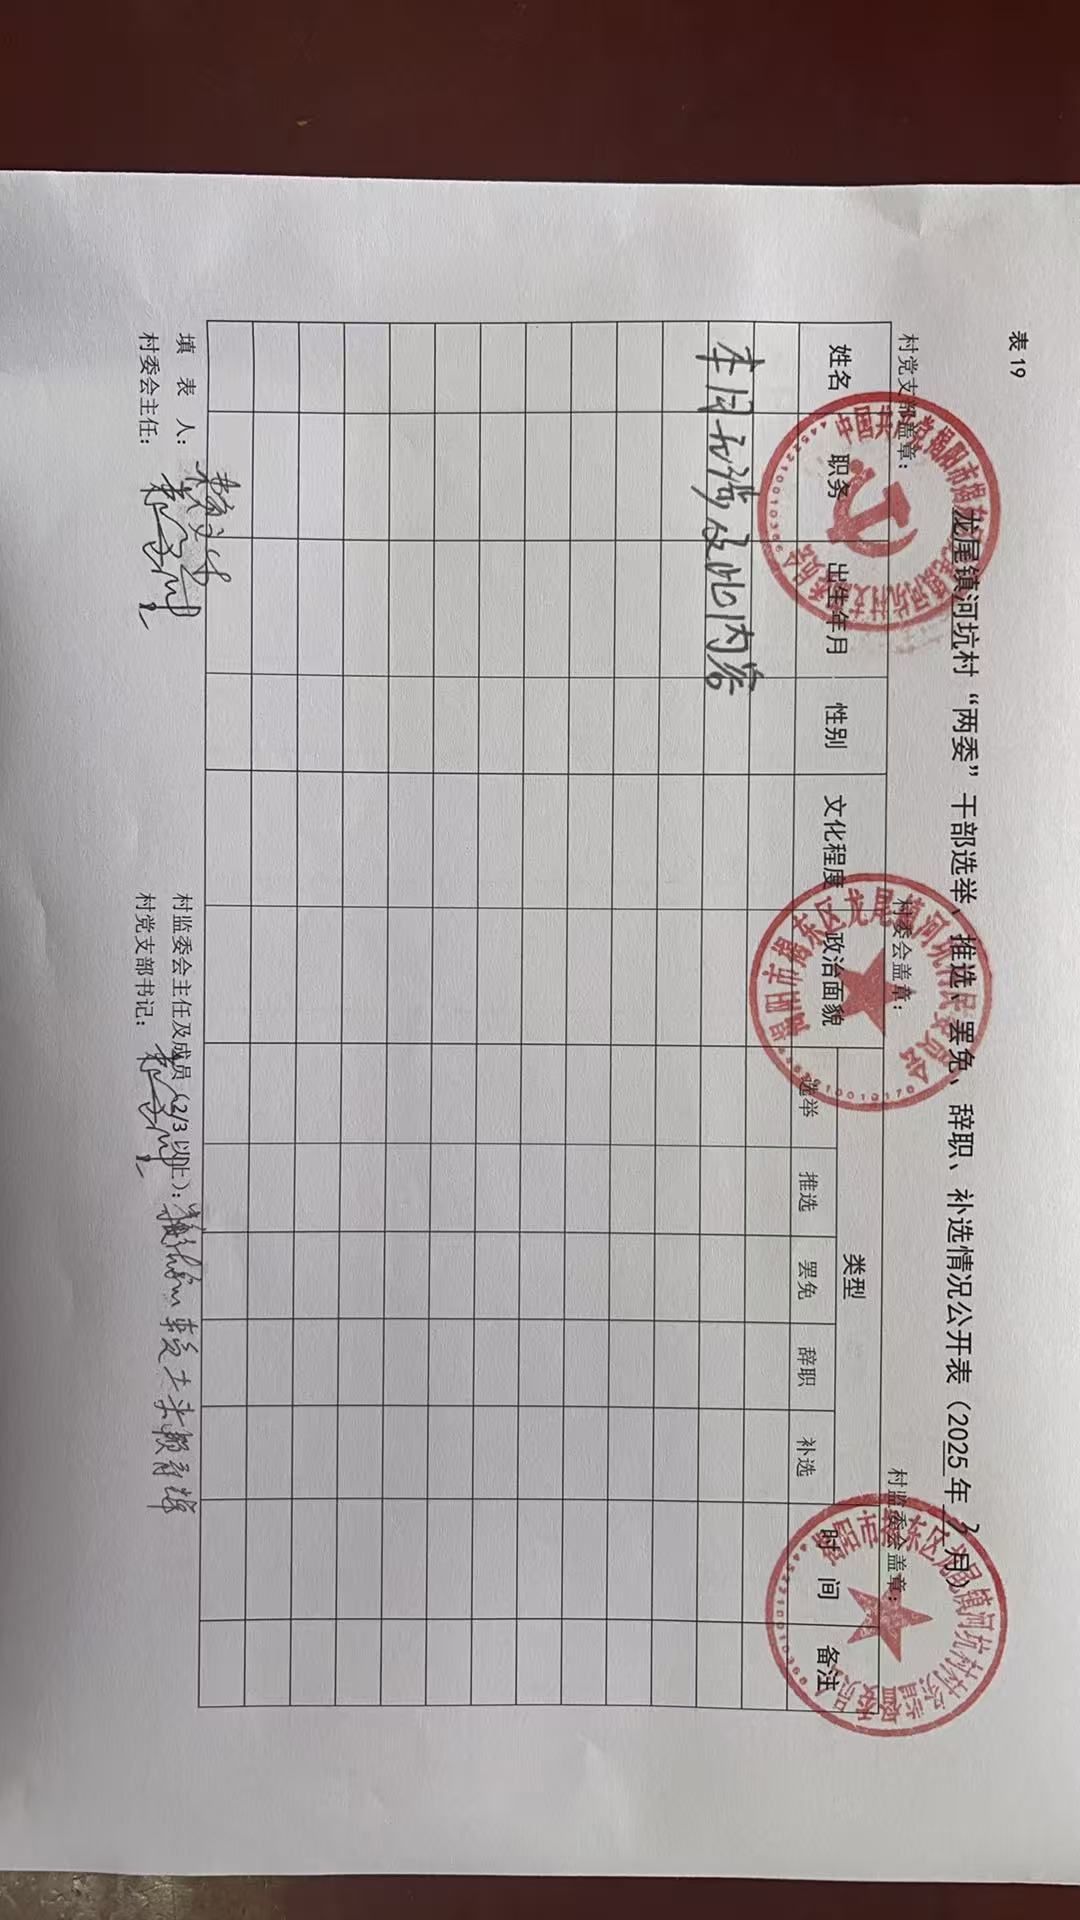 表 19
龙尾镇河坑村“两委”干部选举、推选、罢免、辞职、补选情况公开表（2025年2月）
村党支部盖章： 村委会盖章： 村监委会盖章：
姓名 职务 出生年月 性别 文化程度 政治面貌 类型 时间 备注
选举 推选 罢免 辞职 补选
本月无涉及此内容
填 表 人： 村监委会主任及成员（2/3以上）：
村委会主任： 村党支部书记：